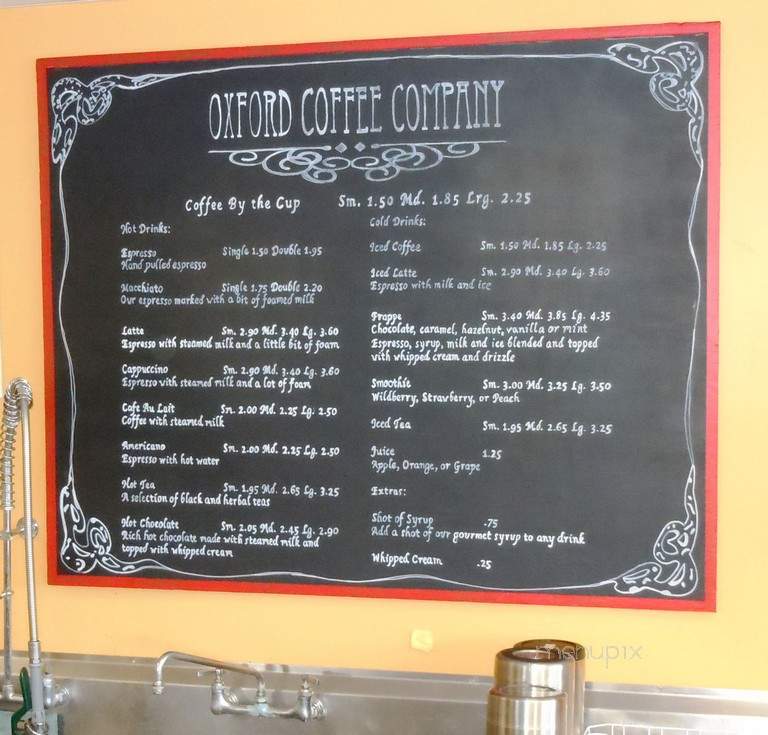 OXFORD COFFEE COMPANY
Coffee By the Cup Sm. 1.50 Md. 1.85 Lrg. 2.25
Hot Drinks:
Espresso Single 1.50 Double 1.95
Hand pulled espresso
Macchiato Single 1.75 Double 2.20
Our espresso marked with a bit of foamed milk
Latte Sm. 2.90 Md. 3.40 Lg. 3.60
Espresso with steamed milk and a little bit of foam
Cappuccino Sm. 2.90 Md. 3.40 Lg. 3.60
Espresso with steamed milk and a lot of foam
Cafe Au Lait Sm. 2.00 Md. 2.25 Lg. 2.50
Coffee with steamed milk
Americano Sm. 2.00 Md. 2.25 Lg. 2.50
Espresso with hot water
Hot Tea Sm. 1.95 Md. 2.65 Lg. 3.25
A selection of black and herbal teas
Hot Chocolate Sm. 2.05 Md. 2.45 Lg. 2.90
Rich hot chocolate made with steamed milk and
topped with whipped cream
Cold Drinks:
Iced Coffee Sm. 1.50 Md. 1.85 Lg. 2.25
Iced Latte Sm. 2.90 Md. 3.40 Lg. 3.60
Espresso with milk and ice
Frappe Sm. 3.40 Md. 3.85 Lg. 4.35
Chocolate, caramel, hazelnut, vanilla or mint
Espresso, syrup, milk and ice blended and topped
with whipped cream and drizzle
Smoothie Sm. 3.00 Md. 3.25 Lg. 3.50
Wildberry, Strawberry, or Peach
Iced Tea Sm. 1.95 Md. 2.65 Lg. 3.25
Juice 1.25
Apple, Orange, or Grape
Extras:
Shot of Syrup .75
Add a shot of our gourmet syrup to any drink
Whipped Cream .25
menupix